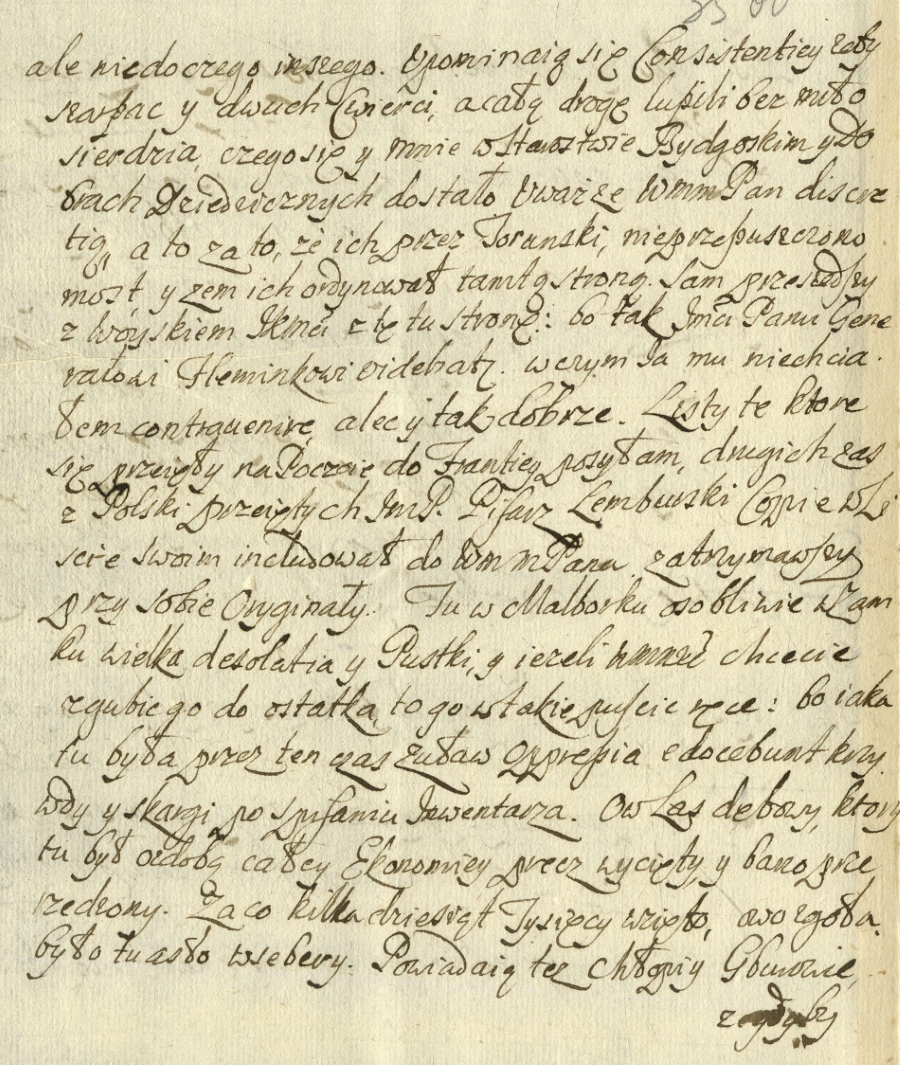 ale niedoczego inszego. Upominaią się Consistentiey żeby
szarpac y dwuch Cwierci, a całą drogę łupili bez miło
sierdzia, czego się y mnie w Starostwie Bydgoskim y Do
brach Dziedzicznych dostało Uważże WmmPan discre
tią, a to za to, że ich przez Torunski, nieprzepuszczono
most, y żem ich ordynował tamtą stroną. Sam przeszedszy
z Woyskiem IKMci z tę tu stronę: bo tak Jmći Panu Gene
rałowi Fleminkowi videbatr. w czym Ia mu niechcia
łem contravenire, alec y tak dobrze. Listy te ktore
się przeięły na Poczcie do Franciey posyłam, drugich zas
z Polski przeiętych JmP. Pisarz Lemburski Copie w Li
scie swoim includował do WmmPana zatrzymawszy
przy sobie Oryginały. Tu w Malborku osobliwie w Zam
ku wielka desolatia y Pustki, y ieżeli chcecie
zgubic go do ostatka, to go w takie pusćie ręce: bo iaka
tu była przez ten czas Żuław oppressia edocebunt krzy
wdy y skargi po spisaniu Inwentarza. Ow Las dębowy, ktory
tu był ozdobą całey Ekonomiey precz wycięty y barzo prze
rzedzony. Za co kilkadziesiąt Tysięcy wzięto, owo zgoła
było tu asło wsebery. Powiadaią tez Chłopi y Gburowie,
ze gdyby